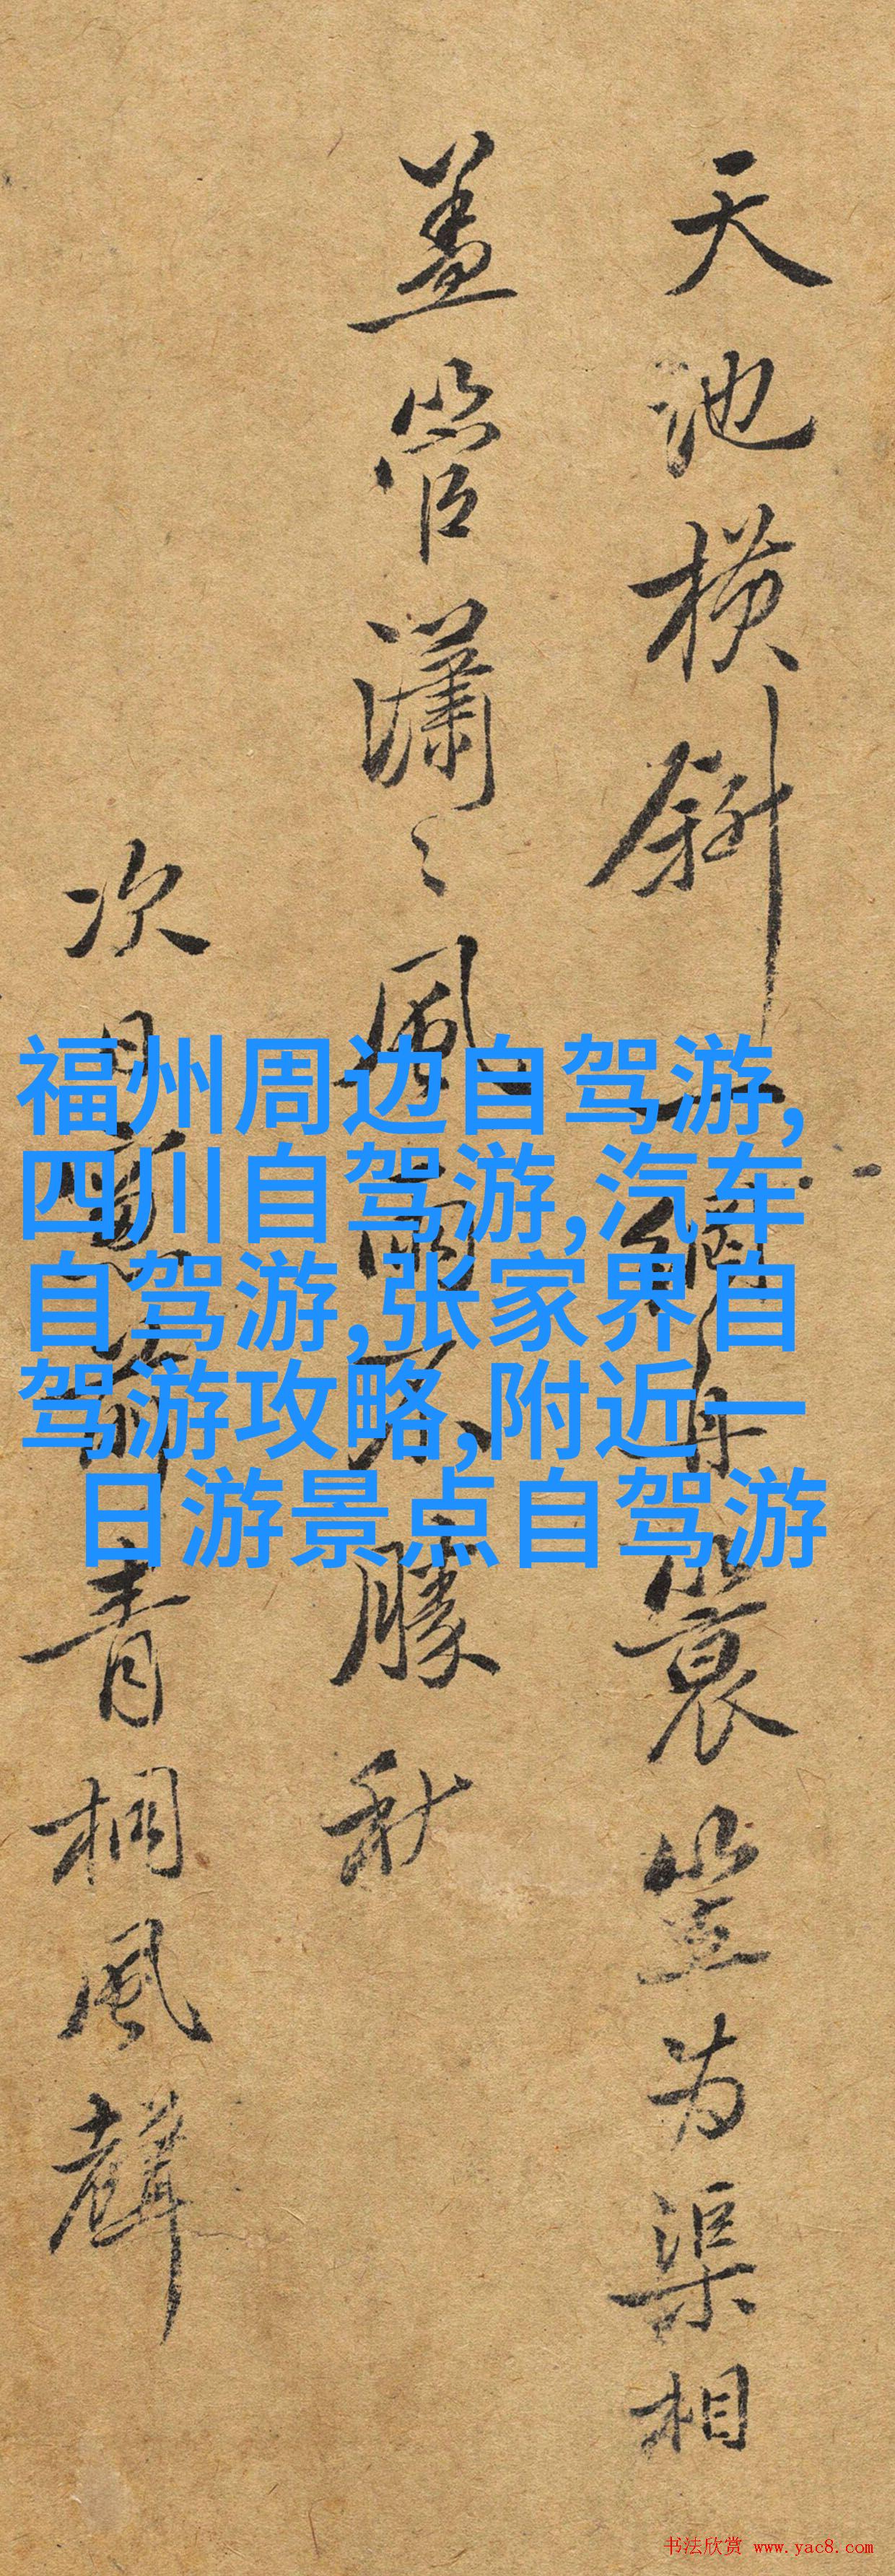 天池横斜一個舟簑笠为渠相
盖管潇〻風雨不勝秋
次日
青桐風聲
福州周边自驾游,
四川自驾游,汽车
自驾游,张家界自
驾游攻略,附近一
日游景点自驾游
书法欣赏 www.yac8.com